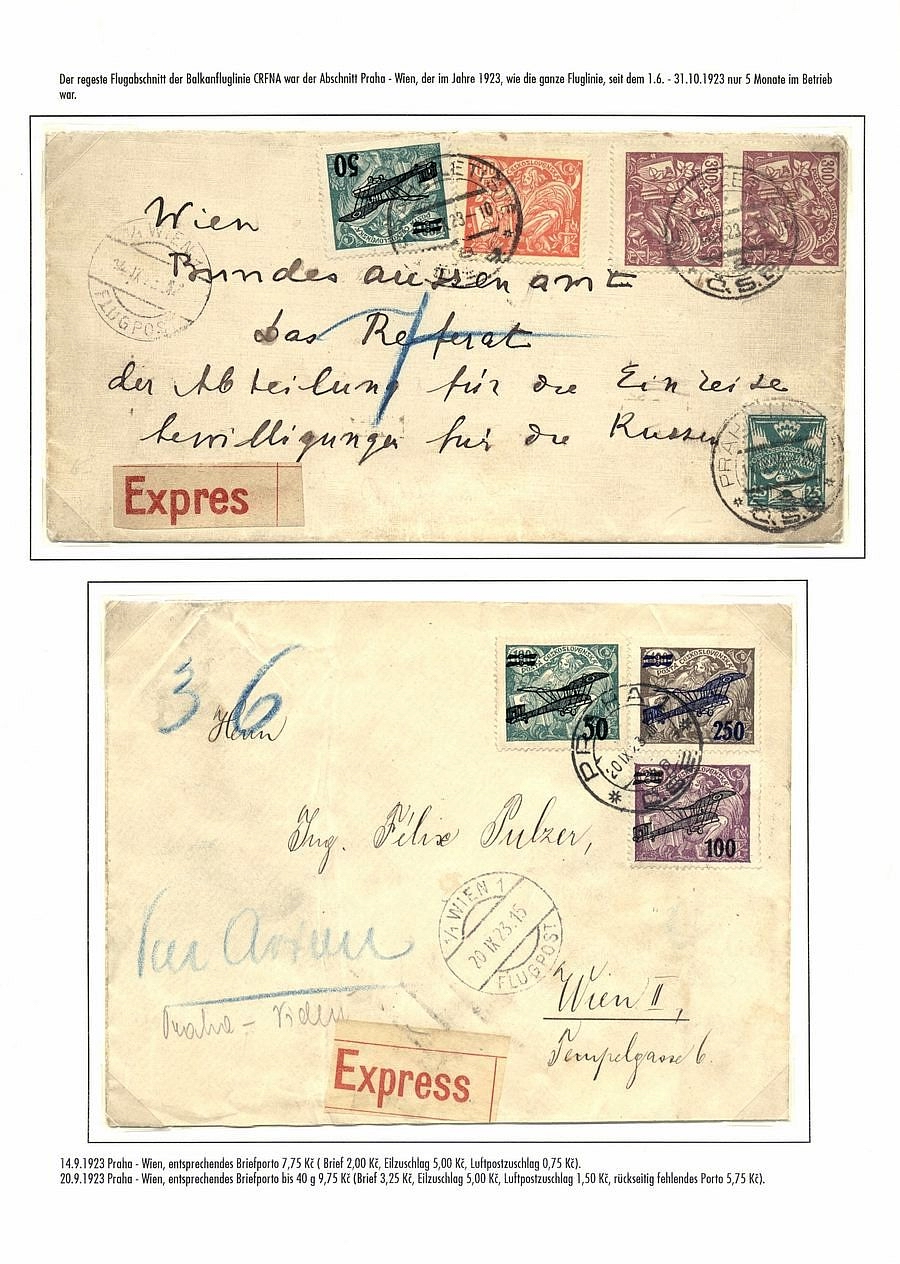 Der regeste Flugabschnitt der Balkanfluglinie CRFNA war der Abschnitt Praha - Wien, der im Jahre 1923, wie die ganze Fluglinie, seit dem 1.6. - 31.10.1923 nur 5 Monate im Betrieb
war.
50
300 300
Wien
1/1 WIEN 1
FLUGPOST
Bundes aussenamt
das Referat
der Abteilung für die Einreise
bewilligungen für die Russen
PRAHA
Č.S.R.
25 25
Expres
36
50
250
100
PRAHA 1
20 IX 23
Herrn
Ing. Félix Pulzer,
1/1 WIEN 1
20 IX 23.15
FLUGPOST
Par Avion
Praha - Videň
Wien II,
Tempelgasse 6.
Express
14.9.1923 Praha - Wien, entsprechendes Briefporto 7,75 Kč ( Brief 2,00 Kč, Eilzuschlag 5,00 Kč, Luftpostzuschlag 0,75 Kč).
20.9.1923 Praha - Wien, entsprechendes Briefporto bis 40 g 9,75 Kč (Brief 3,25 Kč, Eilzuschlag 5,00 Kč, Luftpostzuschlag 1,50 Kč, rückseitig fehlendes Porto 5,75 Kč).